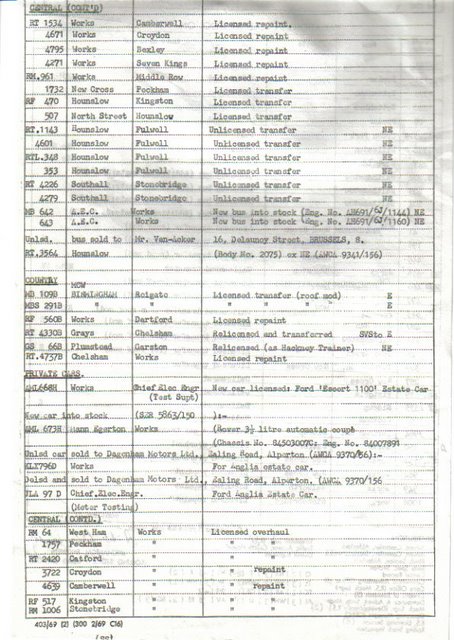 CENTRAL (CONT'D)
RT 1534 Works Camberwell Licensed repaint.
4671 Works Croydon Licensed repaint
4795 Works Bexley Licensed repaint
4271 Works Seven Kings Licensed repaint
RM.961 Works Middle Row Licensed repaint
1732 New Cross Peckham Licensed transfer
RF 470 Hounslow Kingston Licensed transfer
507 North Street Hounslow Licensed transfer
RT.1143 Hounslow Fulwell Unlicensed transfer NE
4601 Hounslow Fulwell Unlicensed transfer NE
RTL.348 Hounslow Fulwell Unlicensed transfer NE
353 Hounslow Fulwell Unlicensed transfer NE
RT 4226 Southall Stonebridge Unlicensed transfer NE
4279 Southall Stonebridge Unlicensed transfer NE
MB 642 A.E.C. Works New bus into stock (Eng. No. AH691/6J/1144) NE
643 A.E.C. Works New bus into stock (Eng. No. AH691/6J/1160) NE
Unlsd. bus sold to Mr. Van-Acker 16, Delauncy Street, BRUSSELS, 8.
RT.3564 Hounslow (Body No. 2075) ex NE (AWCA 9341/156)
COUNTRY
MCW
MB 109B BIRMINGHAM Reigate Licensed transfer (roof mod) E
MBS 291B " " " " " E
RF 560B Works Dartford Licensed repaint
RT 4330B Grays Chelsham Relicensed and transferred SVSto E
GS 66B Plumstead Garston Relicensed (as Hackney Trainer) NE
RT.4737B Chelsham Works Licensed repaint
PRIVATE CARS.
AML668H Works Chief Elec Engr New car licensed: Ford 'Escort 1100' Estate Car
(Test Supt)
New car into stock (SZR 5863/150 ):-
AML 673H Mann Egerton Works (Rover 3½ litre automatic coupé
(Chassis No. 84503007C: Eng. No. 84007891
Unlsd car sold to Dagenham Motors Ltd., Ealing Road, Alperton (AWCA 9370/86):-
GLX796D Works For Anglia estate car.
Delsd and sold to Dagenham Motors Ltd., Ealing Road, Alperton. (AWCA 9370/156
JLA 97 D Chief.Elec.Engr. Ford Anglia Estate Car.
(Meter Testing)
CENTRAL (CONTD.)
RM 64 West Ham Works Licensed overhaul
1757 Peckham " " "
RT 2420 Catford " " "
3722 Croydon " " repaint
4639 Camberwell " " repaint
RF 517 Kingston " " "
RM 1006 Stonebridge " " "
403/69 (2) (300 2/69 C16)